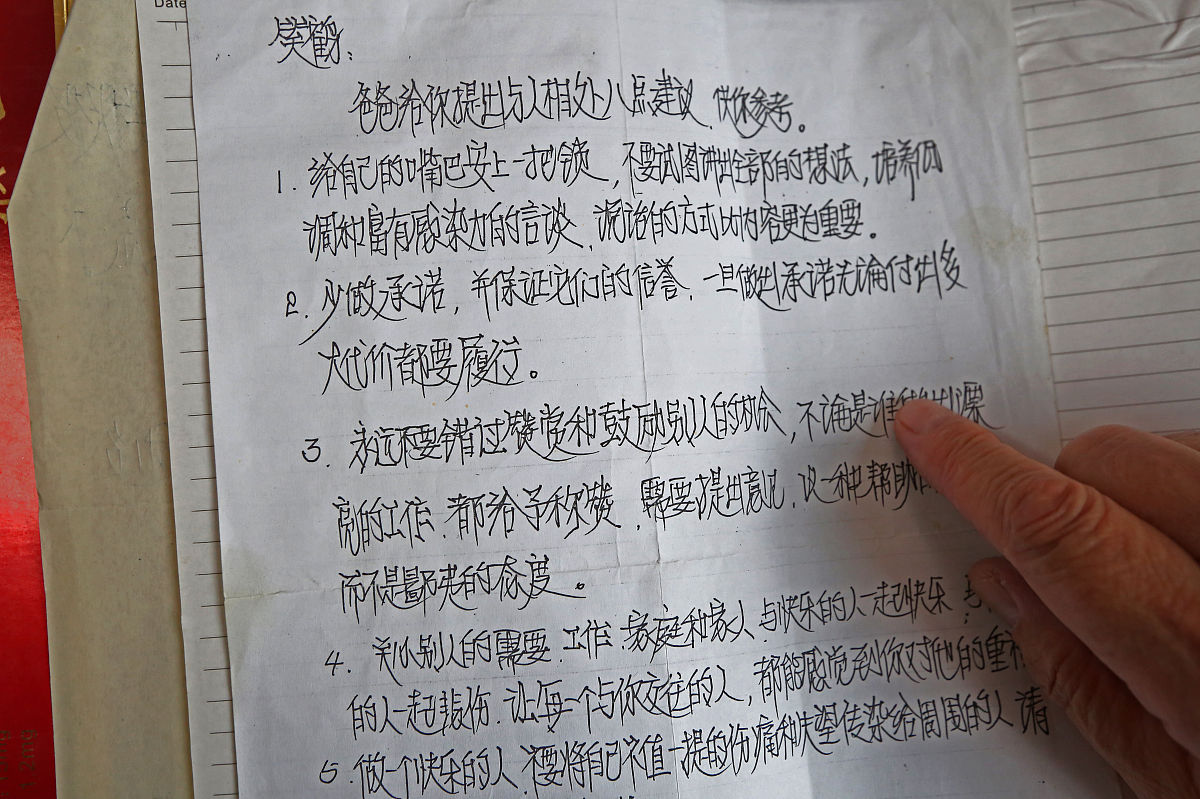 Date
笑鹳：
爸爸给你提出与人相处八点建议，供你参考。
1. 给自己的嘴巴安上一把锁，不要试图讲出全部的想法，培养低
调和富有感染力的言谈，说话的方式比内容更为重要。
2. 少做承诺，并保证它们的信誉，一旦做出承诺无论付出多
大代价都要履行。
3. 永远不要错过赞赏和鼓励别人的机会，不论是谁 出
的工作，都给予称赞，需要提出意见，以一种帮助
而不是鄙夷的态度。
4. 关心别人的需要、工作、家庭和家人，与快乐的人一起快乐，与
的人一起悲伤，让每一个与你交往的人，都能感觉到你对他的重视
5. 做一个快乐的人，不要将自己不值一提的伤痛和失望传染给周围的人，请